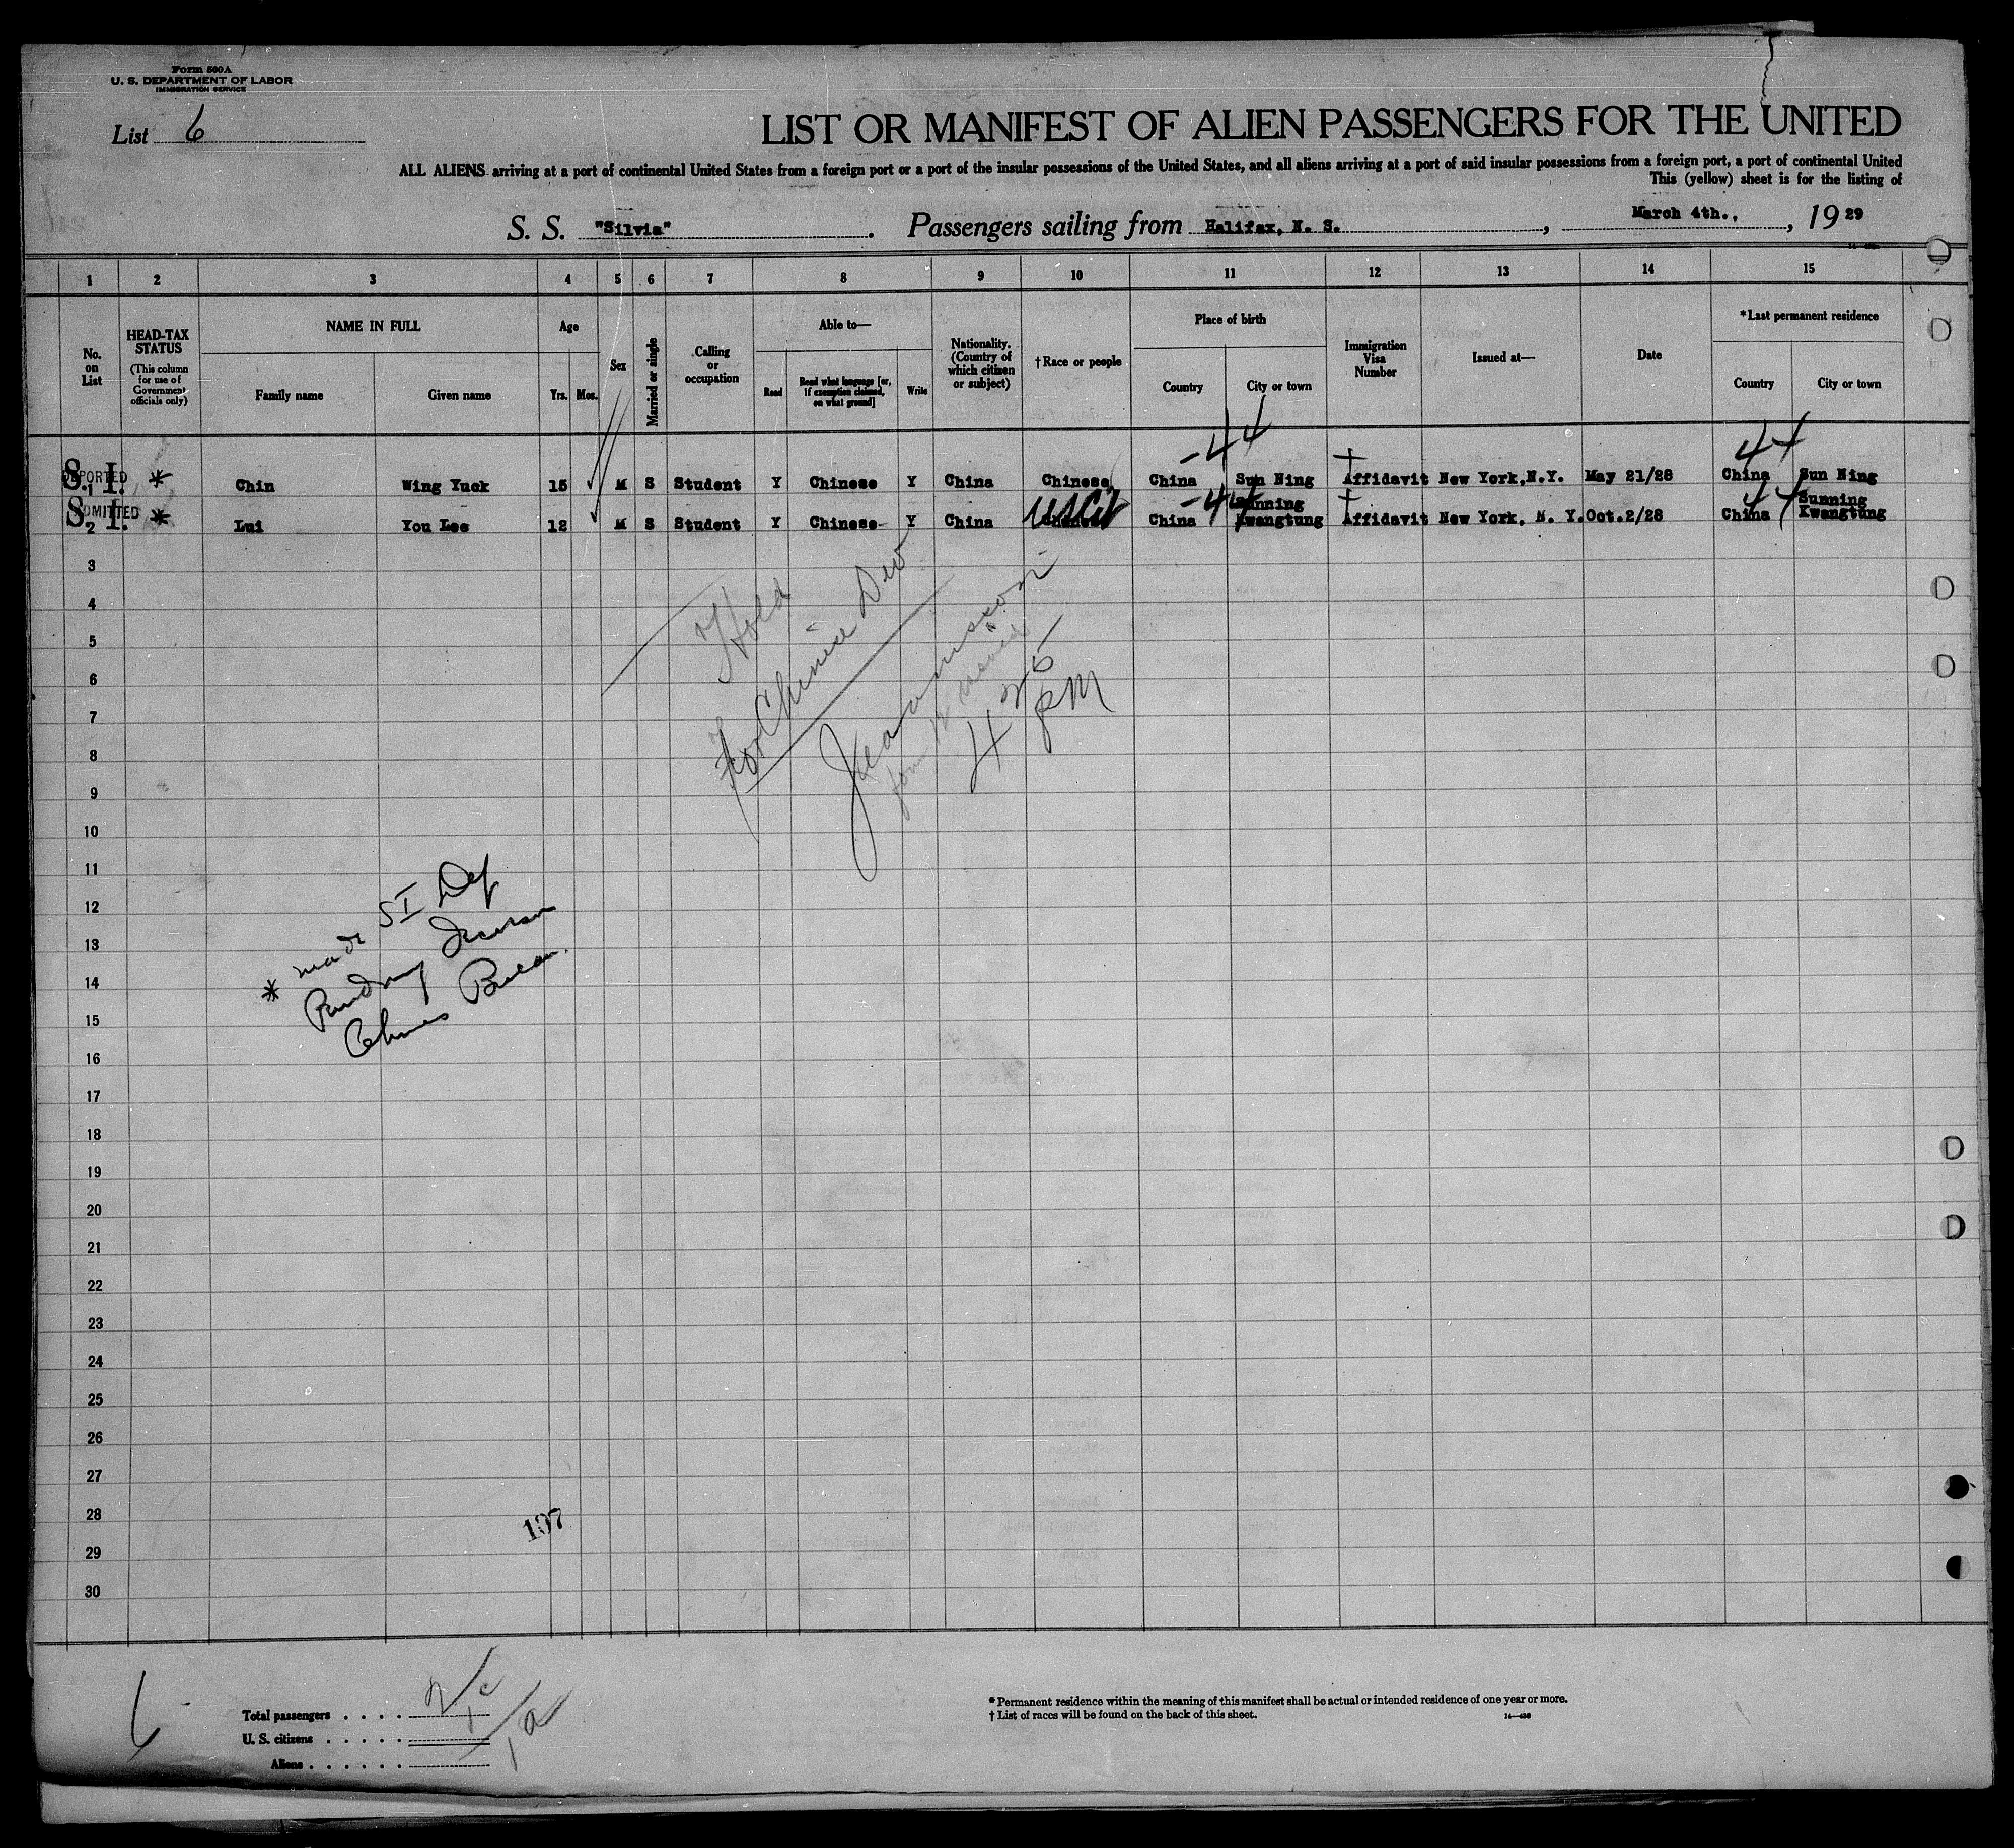 Form 500A
U. S. DEPARTMENT OF LABOR
IMMIGRATION SERVICE
List 6
LIST OR MANIFEST OF ALIEN PASSENGERS FOR THE UNITED
ALL ALIENS arriving at a port of continental United States from a foreign port or a port of the insular possessions of the United States, and all aliens arriving at a port of said insular possessions from a foreign port, a port of continental United
This (yellow) sheet is for the listing of
S. S. "Silvia". Passengers sailing from Halifax, N. S., March 4th., , 1929
1 2 3 4 5 6 7 8 9 10 11 12 13 14 15
No. on List
HEAD-TAX STATUS (This column for use of Government officials only)
NAME IN FULL
Family name Given name
Age
Yrs. Mos.
Sex
Married or single
Calling or occupation
Able to—
Read Read what language [or, if exemption claimed, on what ground] Write
Nationality. (Country of which citizen or subject)
†Race or people
Place of birth
Country City or town
Immigration Visa Number
Issued at—
Date
*Last permanent residence
Country City or town
44 44
DEPORTED
S. I. 1 * Chin Wing Yuck 15 ✓ M S Student Y Chinese Y China Chinese China Sun Ning † Affidavit New York,N.Y. May 21/28 China Sun Ning
ADMITTED
S. I. 2 * Lui You Lee 12 ✓ M S Student Y Chinese Y China USCit China 44 Sunning Kwangtung † Affidavit New York, N. Y. Oct.2/28 China 44 Sunning Kwangtung
3
4
5
6
7
8
9
10
11
12
13
14
15
16
17
18
19
20
21
22
23
24
25
26
27
28
29
30
Hold
for Chinese Div
4 25
PM
* made SI Def
107
6
Total passengers . . . . 2
U. S. citizens . . . . . 1c
Aliens . . . . . . 1a
* Permanent residence within the meaning of this manifest shall be actual or intended residence of one year or more.
† List of races will be found on the back of this sheet.
14—430